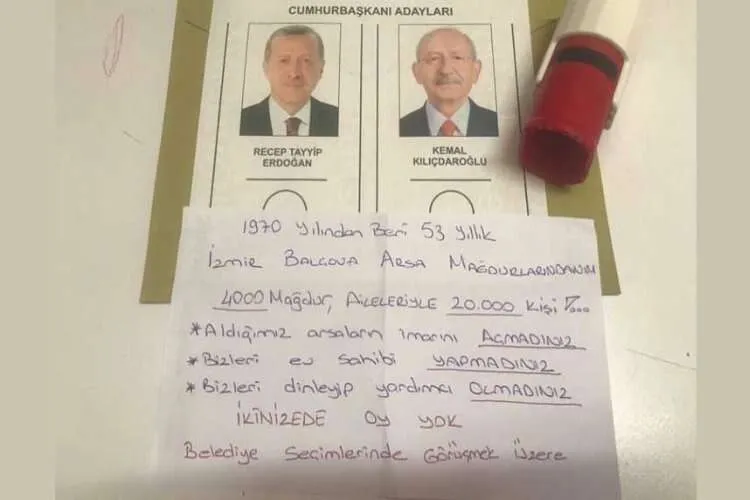 CUMHURBAŞKANI ADAYLARI
RECEP TAYYİP
ERDOĞAN
KEMAL
KILIÇDAROĞLU
1970 Yılından Beri 53 Yıllık
İzmir BALÇOVA ARSA MAĞDURLARINDANIM
4000 Mağdur, AİLELERİYLE 20.000 Kişi
*Aldığımız arsaların imarını AÇMADINIZ
*Bizleri ev sahibi YAPMADINIZ
*Bizleri dinleyip yardımcı OLMADINIZ
İKİNİZEDE OY YOK
Belediye Seçimlerinde Görüşmek Üzere